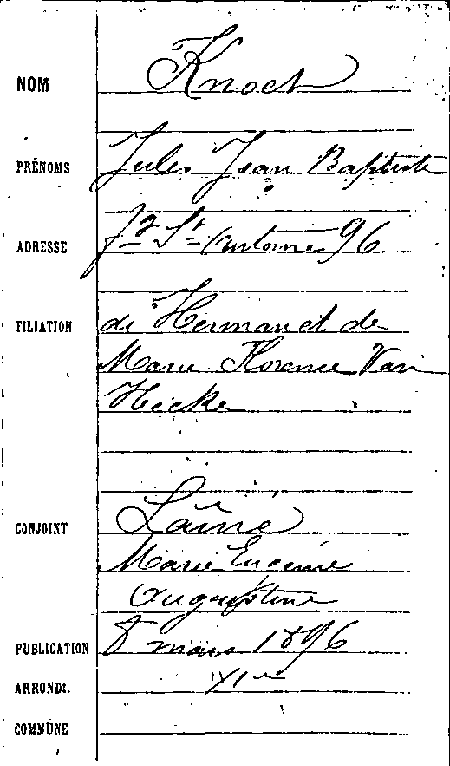 NOM Knoct
PRÉNOMS Jules Jean Baptiste
ADRESSE fg St Antoine 96
FILIATION de Herman et de
Marie Florence Van
Hecke
CONJOINT Laîné
Marie Eugénie
Augustine
PUBLICATION 8 mars 1896
ARRONDt. XIe
COMMUNE